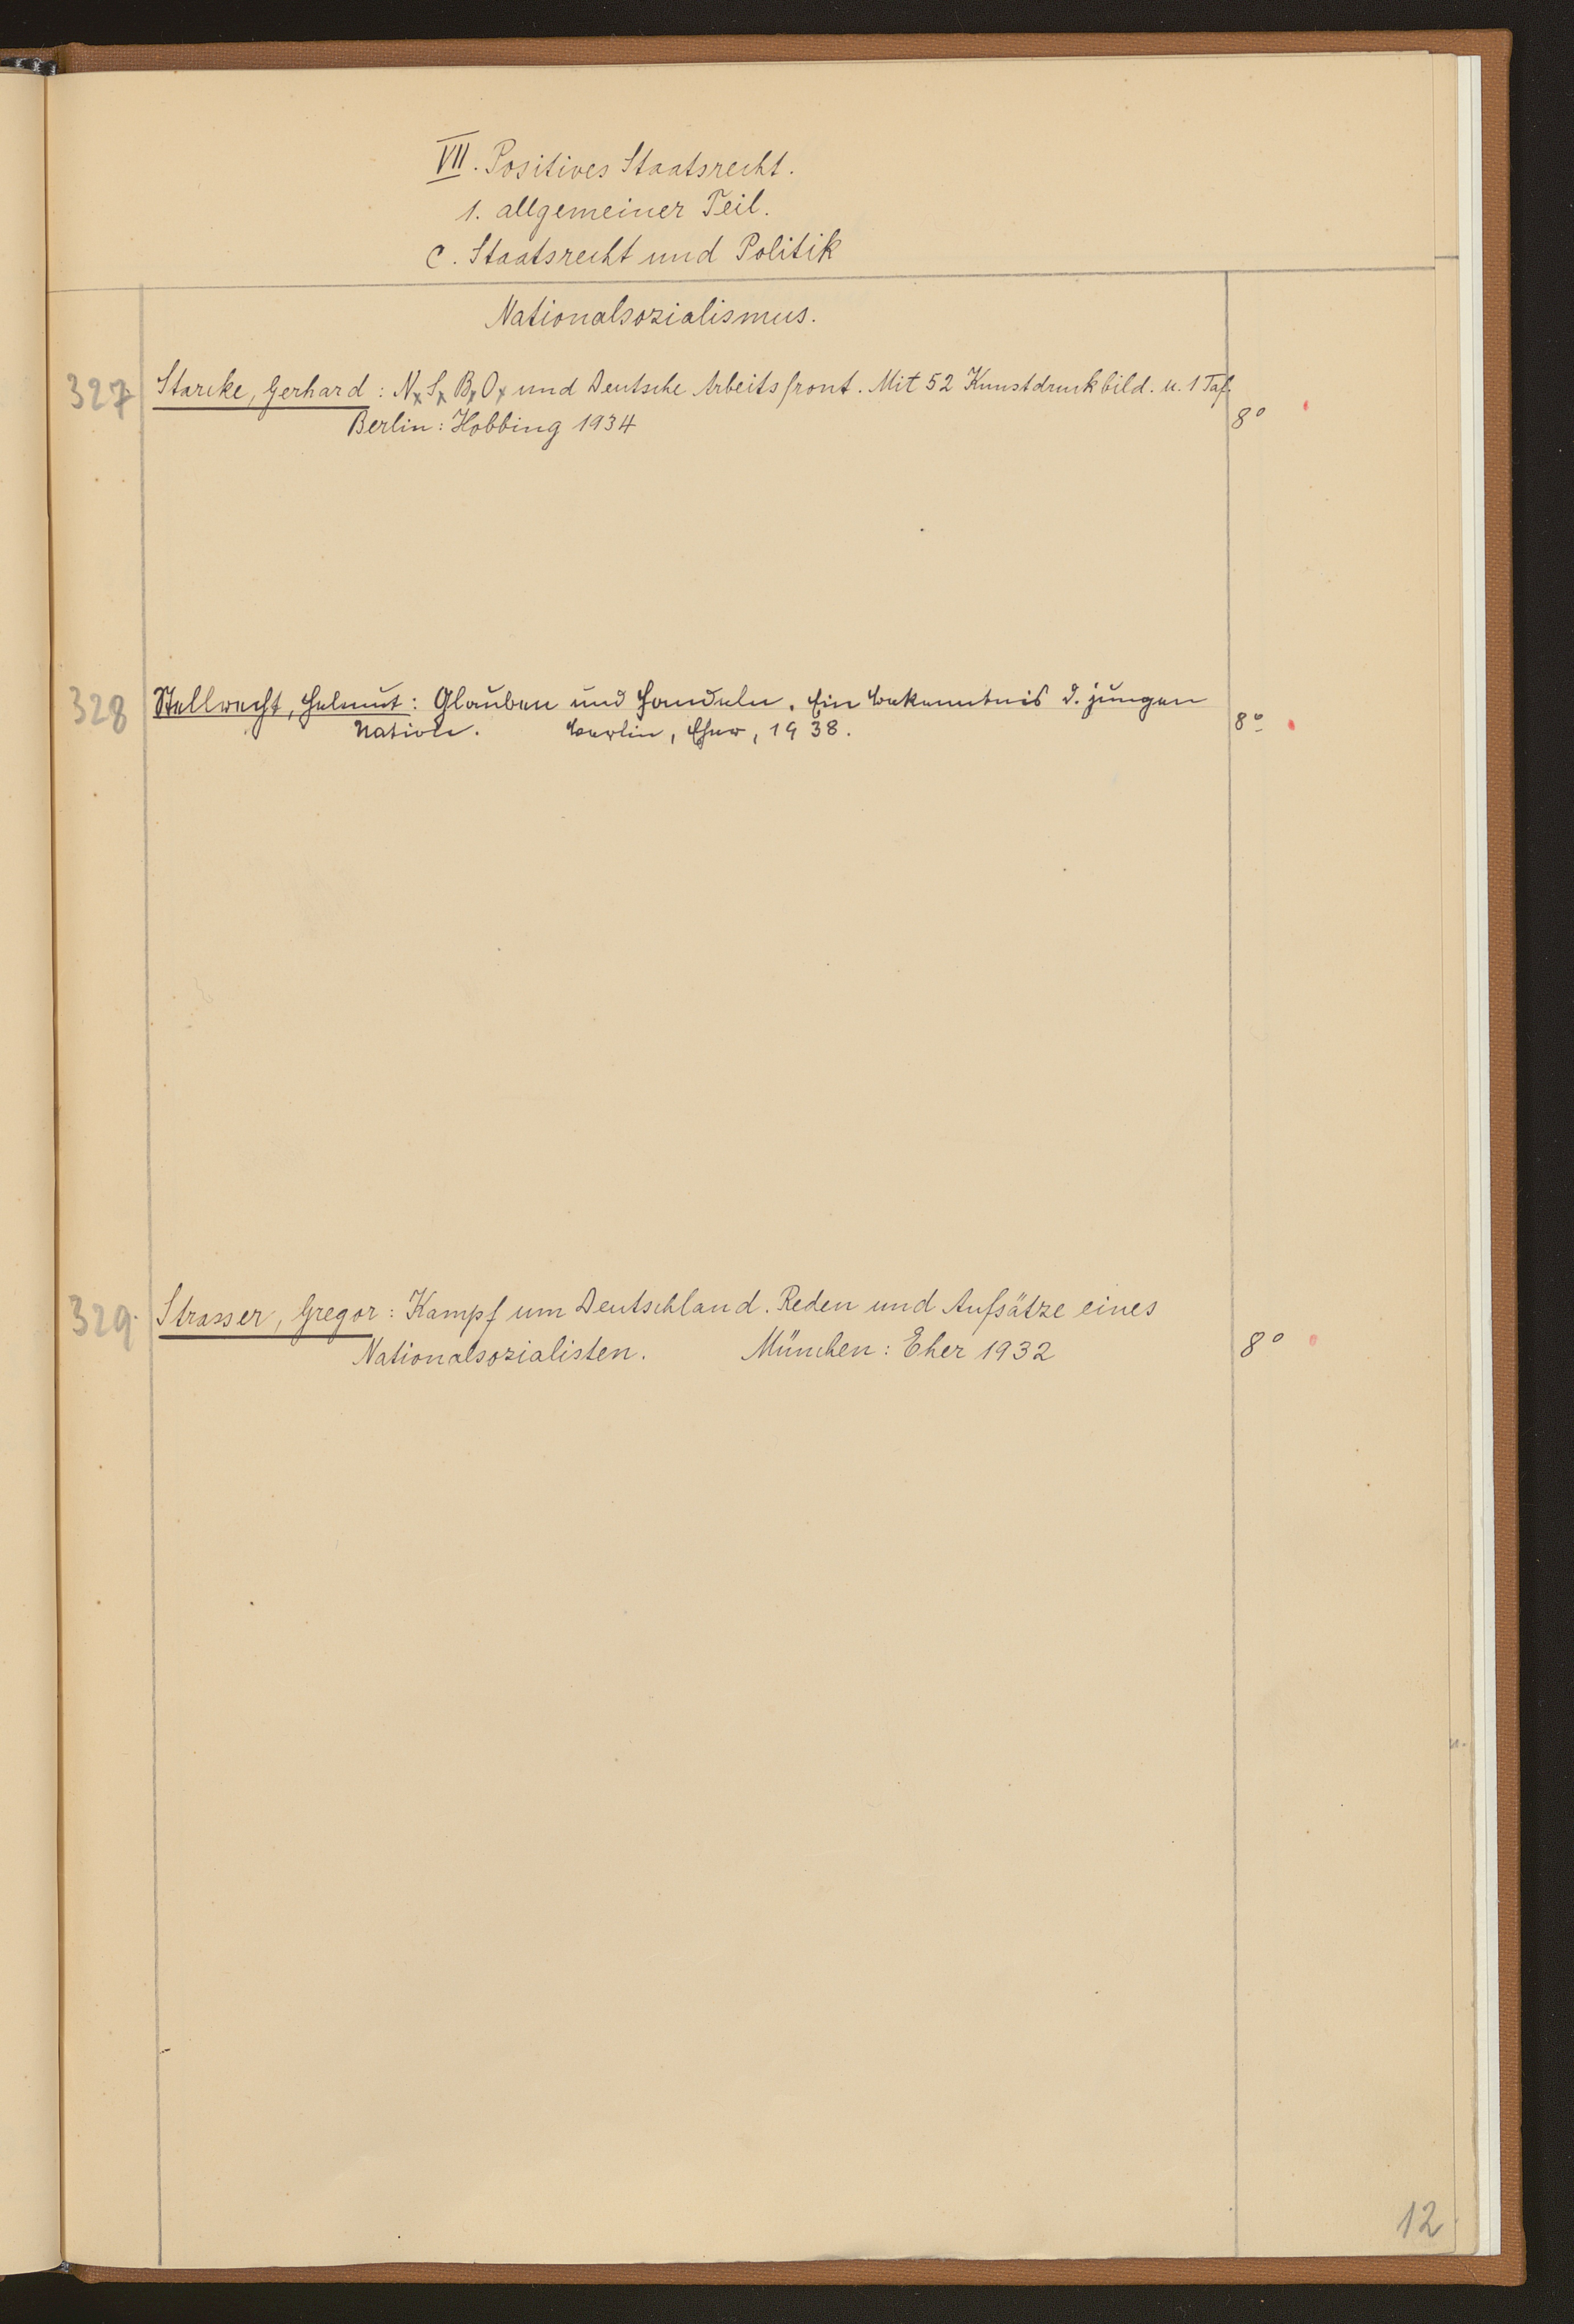 VII. Positives Staatsrecht.
1. allgemeiner Teil.
c. Staatsrecht und Politik
Nationalsozialismus.
327 Starcke, Gerhard: N.S.B.O. und Deutsche Arbeitsfront. Mit 52 Kunstdruckbild. u. 1 Taf.
Berlin: Hobbing 1934 8°
328 Stellrecht, Helmut: Glauben und Handeln. Ein Bekenntnis d. jungen
Nation. Berlin, Eher, 1938. 8°
329. Strasser, Gregor: Kampf um Deutschland. Reden und Aufsätze eines
Nationalsozialisten. München: Eher 1932 8°
12